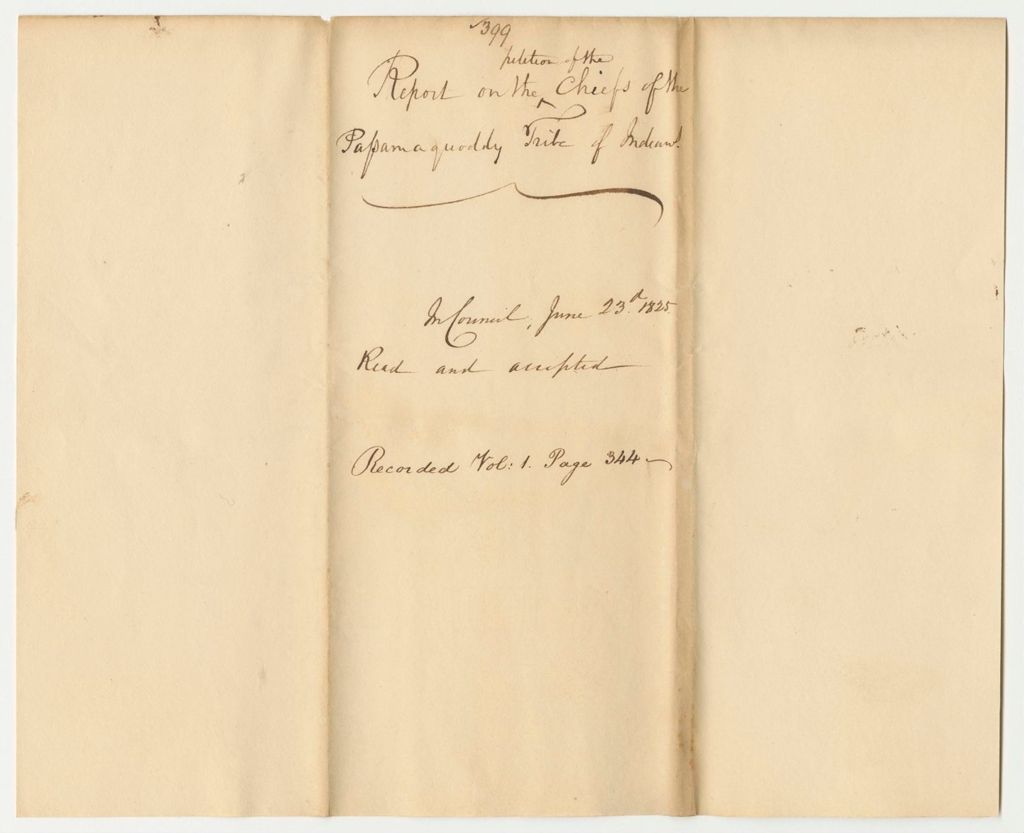 399
petition of the
Report on the ^ Chiefs of the
Passamaquoddy Tribe of Indians.
In Council, June 23d. 1825.
Read and accepted
Recorded Vol: 1. Page 344